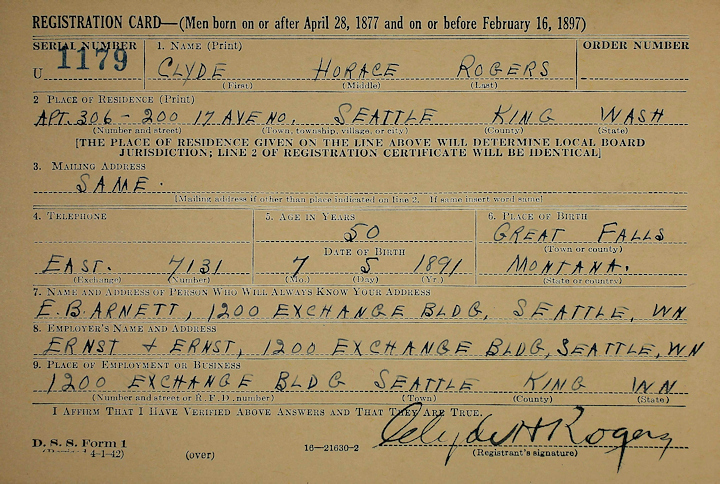 REGISTRATION CARD—(Men born on or after April 28, 1877 and on or before February 16, 1897)
SERIAL NUMBER 1. NAME (Print) ORDER NUMBER
U 1179 CLYDE HORACE ROGERS
(First) (Middle) (Last)
2 PLACE OF RESIDENCE (Print)
APT. 306 - 200 17 AVE NO. SEATTLE KING WASH
(Number and street) (Town, township, village, or city) (County) (State)
[THE PLACE OF RESIDENCE GIVEN ON THE LINE ABOVE WILL DETERMINE LOCAL BOARD
JURISDICTION; LINE 2 OF REGISTRATION CERTIFICATE WILL BE IDENTICAL]
3. MAILING ADDRESS
SAME.
[Mailing address if other than place indicated on line 2. If same insert word same]
4. TELEPHONE 5. AGE IN YEARS 6. PLACE OF BIRTH
50 GREAT FALLS
DATE OF BIRTH (Town or county)
EAST. 7131 7 5 1891 MONTANA.
(Exchange) (Number) (Mo.) (Day) (Yr.) (State or country)
7. NAME AND ADDRESS OF PERSON WHO WILL ALWAYS KNOW YOUR ADDRESS
E. B. ARNETT, 1200 EXCHANGE BLDG, SEATTLE, WN
8. EMPLOYER'S NAME AND ADDRESS
ERNST & ERNST, 1200 EXCHANGE BLDG, SEATTLE, WN
9. PLACE OF EMPLOYMENT OR BUSINESS
1200 EXCHANGE BLDG SEATTLE KING WN
(Number and street or R. F. D. number) (Town) (County) (State)
I AFFIRM THAT I HAVE VERIFIED ABOVE ANSWERS AND THAT THEY ARE TRUE.
Clyde H Rogers
D. S. S. Form 1
(Revised 4-1-42) (over) 16—21630-2 (Registrant's signature)